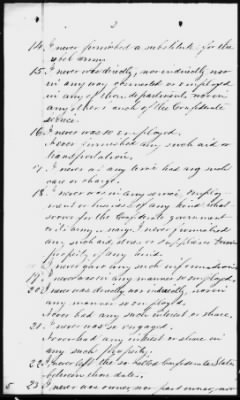 2
14. I never furnished a substitute for the
rebel army.
15. I never was directly, nor indirectly nor
in any way connected or employed
in any of those departments, nor in
any other branch of the Confederate
service.
16. I never was so employed.
I never furnished any such aid or
transportation.
17. I never at any time had any such
or charge.
18. I never was in any service employ
ment or business of any kind that
for the Confederate government
or its army or navy. I never furnished
any such aid, stores or supplies or
property of any kind.
I never gave any such information
19. I never was in any manner so employed.
20. I never was directly nor indirectly, nor in
any manner so employed.
I never had any such interest or share.
21. I never was so engaged.
I never had any interest or share in
any such property.
22. I never left the so called Confederate States
between those dates.
5 23. I never was owner, nor part owner, nor